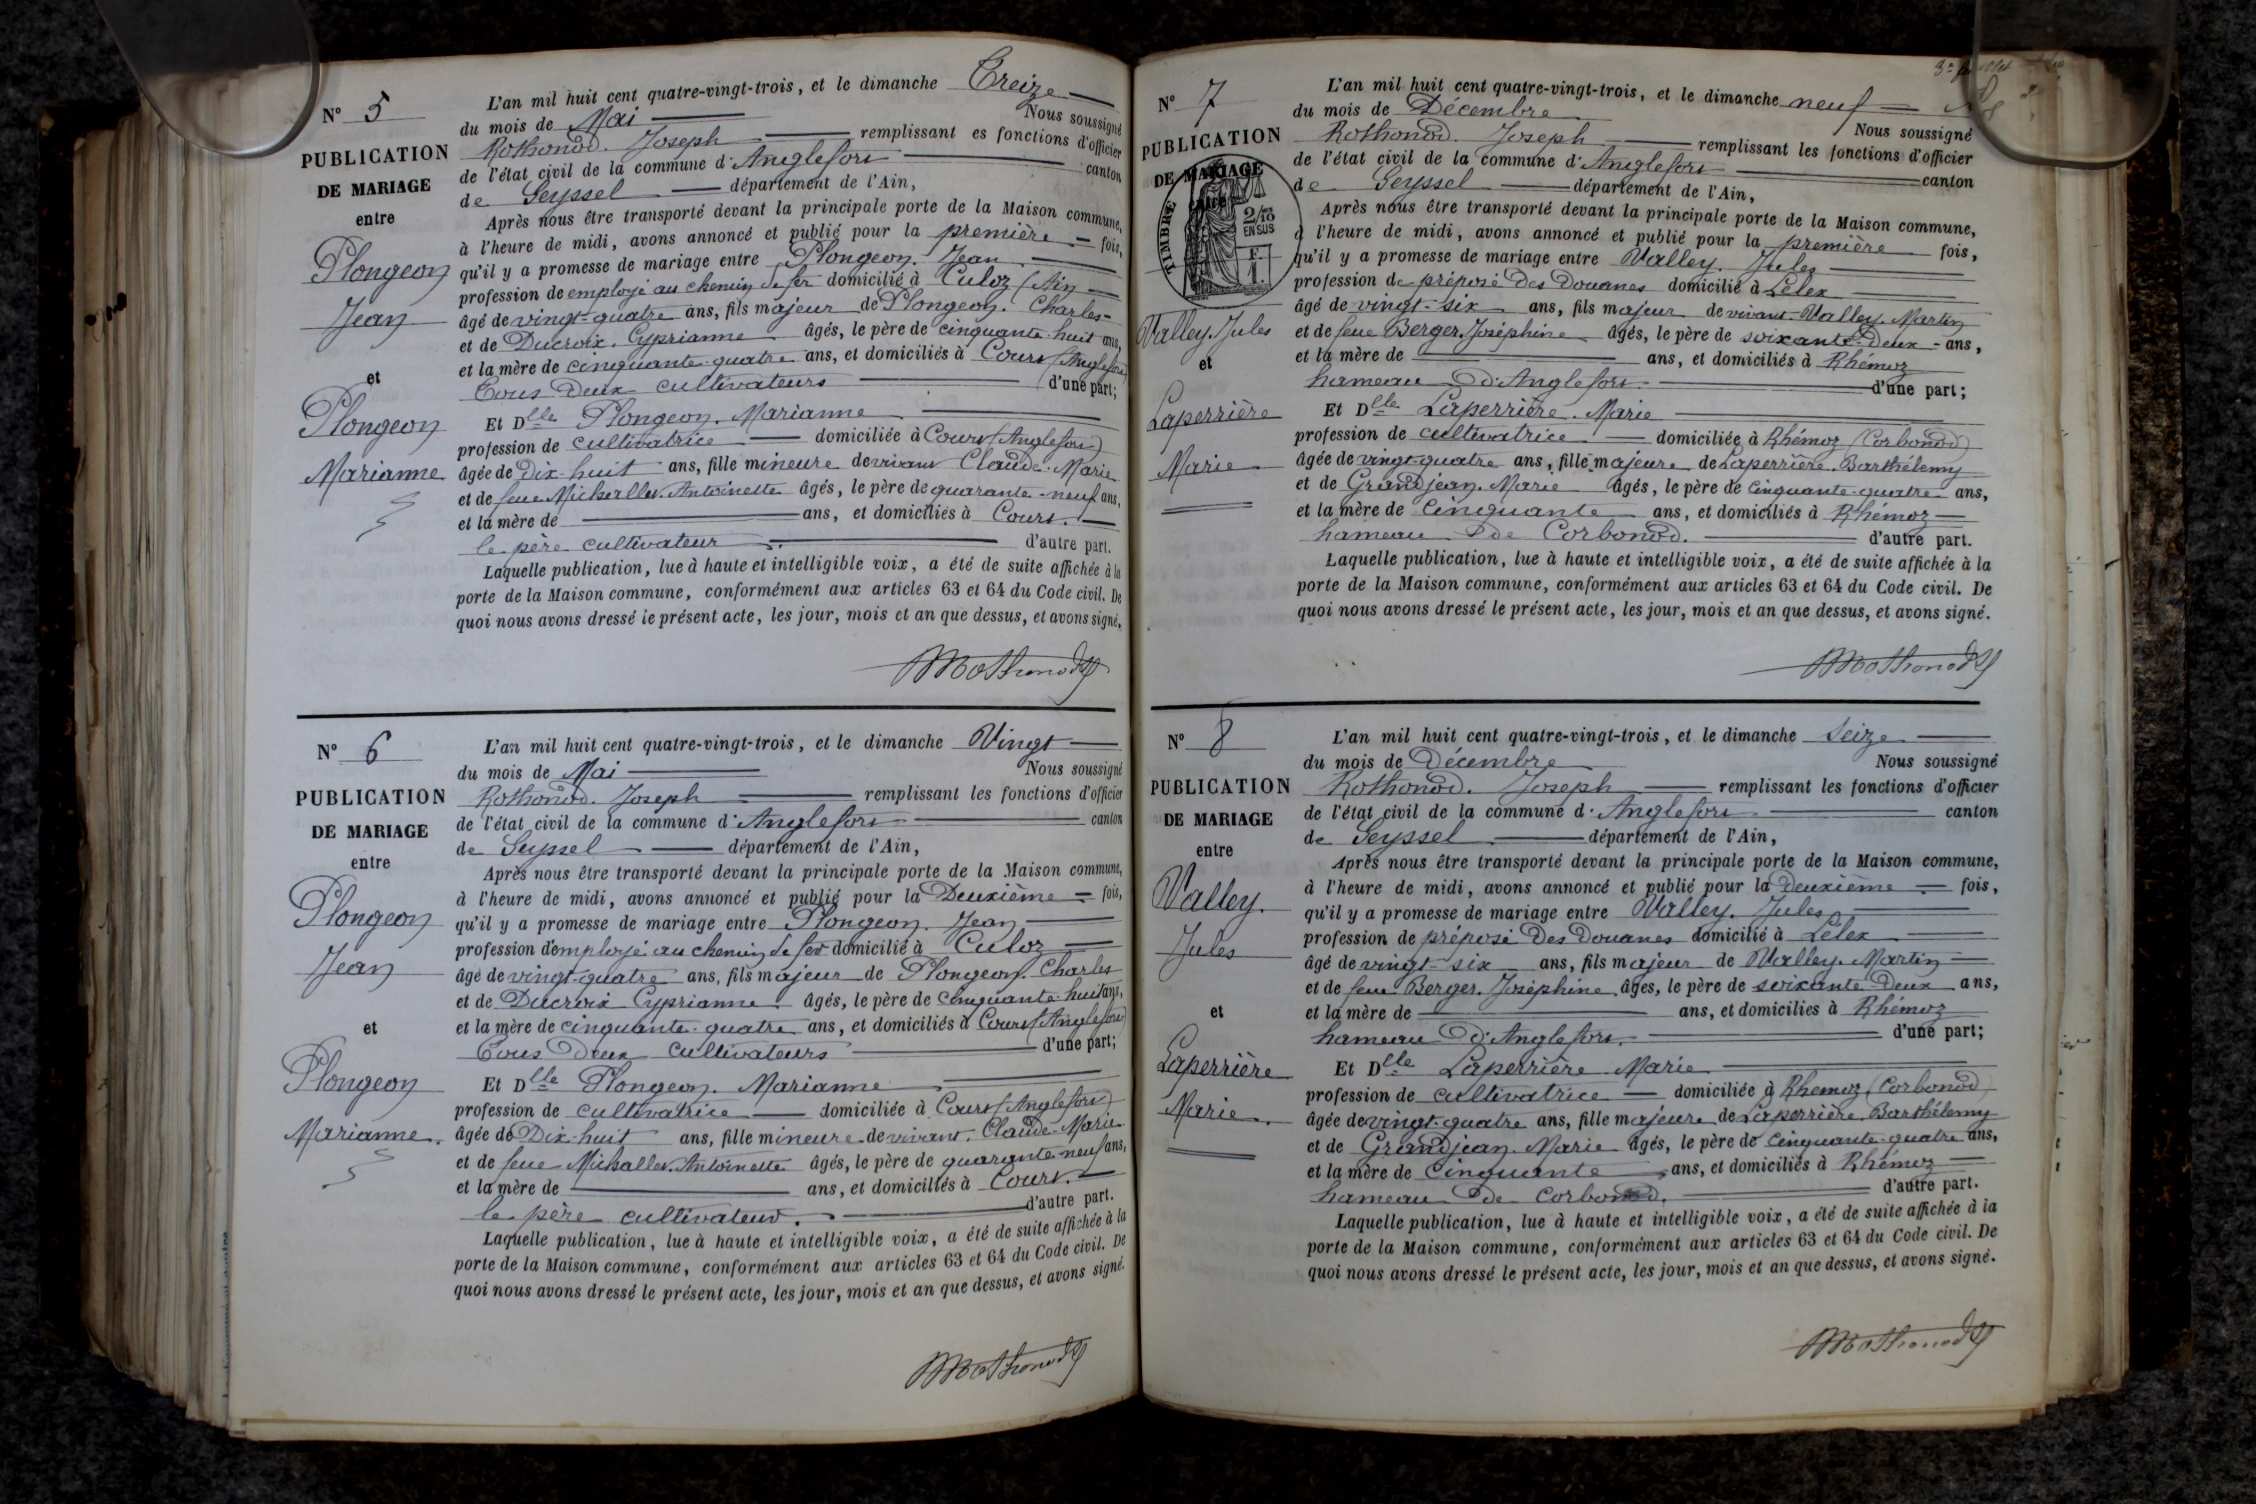 N° 5
PUBLICATION
DE MARIAGE
entre
Plongeon
Jean
et
Plongeon
Marianne
L'an mil huit cent quatre-vingt-trois, et le dimanche Treize
du mois de Mai Nous soussigné
Rothonod. Joseph remplissant es fonctions d'officier
de l'état civil de la commune d'Anglefort canton
de Seyssel département de l'Ain,
Après nous être transporté devant la principale porte de la Maison commune,
à l'heure de midi, avons annoncé et publié pour la première fois,
qu'il y a promesse de mariage entre Plongeon. Jean
profession de employé au chemin de fer domicilié à Culoz (Ain
âgé de vingt-quatre ans, fils majeur de Plongeon. Charles
et de Ducroix. Cyprianne âgés, le père de cinquante-huit ans,
et la mère de cinquante-quatre ans, et domiciliés à Cours (Anglefort)
Tous Deux cultivateurs d'une part;
Et Dlle Plongeon. Marianne
profession de cultivatrice domiciliée à Cours (Anglefort)
âgée de Dix-huit ans, fille mineure de vivant Claude-Marie
et de feue Michallet Antoinette âgés, le père de quarante-neuf ans,
et la mère de ans, et domiciliés à Cours.
le père cultivateur. d'autre part.
Laquelle publication, lue à haute et intelligible voix, a été de suite affichée à la
porte de la Maison commune, conformément aux articles 63 et 64 du Code civil. De
quoi nous avons dressé le présent acte, les jour, mois et an que dessus, et avons signé.
N° 6
PUBLICATION
DE MARIAGE
entre
Plongeon
Jean
et
Plongeon
Marianne.
L'an mil huit cent quatre-vingt-trois, et le dimanche Vingt
du mois de Mai Nous soussigné
Rothonod. Joseph remplissant les fonctions d'officier
de l'état civil de la commune d'Anglefort canton
de Seyssel département de l'Ain,
Après nous être transporté devant la principale porte de la Maison commune,
à l'heure de midi, avons annoncé et publié pour la Deuxième fois,
qu'il y a promesse de mariage entre Plongeon. Jean
profession d'employé au chemin de fer domicilié à Culoz
âgé de vingt-quatre ans, fils majeur de Plongeon. Charles
et de Ducroix Cyprianne âgés, le père de cinquante-huit ans,
et la mère de cinquante-quatre ans, et domiciliés à Cours (Anglefort)
Tous Deux cultivateurs d'une part;
Et Dlle Plongeon. Marianne
profession de cultivatrice domiciliée à Cours (Anglefort)
âgée de Dix-huit ans, fille mineure de vivant. Claude-Marie
et de feue Michallet Antoinette âgés, le père de quarante-neuf ans,
et la mère de ans, et domiciliés à Cours.
le père cultivateur. d'autre part.
Laquelle publication, lue à haute et intelligible voix, a été de suite affichée à la
porte de la Maison commune, conformément aux articles 63 et 64 du Code civil. De
quoi nous avons dressé le présent acte, les jour, mois et an que dessus, et avons signé.
N° 7
PUBLICATION
DE MARIAGE
entre
TIMBRE
2/10
EN SUS
F.
1.
Valley. Jules
et
Laperrière
Marie
L'an mil huit cent quatre-vingt-trois, et le dimanche neuf
du mois de Décembre Nous soussigné
Rothonod. Joseph remplissant les fonctions d'officier
de l'état civil de la commune d'Anglefort canton
de Seyssel département de l'Ain,
Après nous être transporté devant la principale porte de la Maison commune,
à l'heure de midi, avons annoncé et publié pour la première fois,
qu'il y a promesse de mariage entre Valley. Jules
profession de préposé Des Douanes domicilié à Lélex
âgé de vingt-six ans, fils majeur de vivant Valley. Martin
et de feue Berger. Joséphine âgés, le père de soixante-Deux ans,
et la mère de ans, et domiciliés à Rhémoz
hameau d'Anglefort. d'une part;
Et Dlle Laperrière. Marie
profession de cultivatrice domiciliée à Rhémoz (Corbonod)
âgée de vingt-quatre ans, fille majeure de Laperrière. Barthélemy
et de Grandjean. Marie âgés, le père de cinquante-quatre ans,
et la mère de cinquante ans, et domiciliés à Rhémoz
hameau de Corbonod. d'autre part.
Laquelle publication, lue à haute et intelligible voix, a été de suite affichée à la
porte de la Maison commune, conformément aux articles 63 et 64 du Code civil. De
quoi nous avons dressé le présent acte, les jour, mois et an que dessus, et avons signé.
N° 8
PUBLICATION
DE MARIAGE
entre
Valley.
Jules
et
Laperrière
Marie.
L'an mil huit cent quatre-vingt-trois, et le dimanche seize
du mois de Décembre Nous soussigné
Rothonod. Joseph remplissant les fonctions d'officier
de l'état civil de la commune d'Anglefort canton
de Seyssel département de l'Ain,
Après nous être transporté devant la principale porte de la Maison commune,
à l'heure de midi, avons annoncé et publié pour la Deuxième fois,
qu'il y a promesse de mariage entre Valley. Jules
profession de préposé Des Douanes domicilié à Lélex
âgé de vingt-six ans, fils majeur de Valley. Martin
et de feue Berger. Joséphine âgés, le père de soixante Deux ans,
et la mère de ans, et domiciliés à Rhémoz
hameau d'Anglefort. d'une part;
Et Dlle Laperrière Marie
profession de cultivatrice domiciliée à Rhemoz (Corbonod)
âgée de vingt-quatre ans, fille majeure de Laperrière. Barthélemy
et de Grandjean. Marie âgés, le père de cinquante-quatre ans,
et la mère de cinquante ans, et domiciliés à Rhémoz
hameau de Corbonod. d'autre part.
Laquelle publication, lue à haute et intelligible voix, a été de suite affichée à la
porte de la Maison commune, conformément aux articles 63 et 64 du Code civil. De
quoi nous avons dressé le présent acte, les jour, mois et an que dessus, et avons signé.